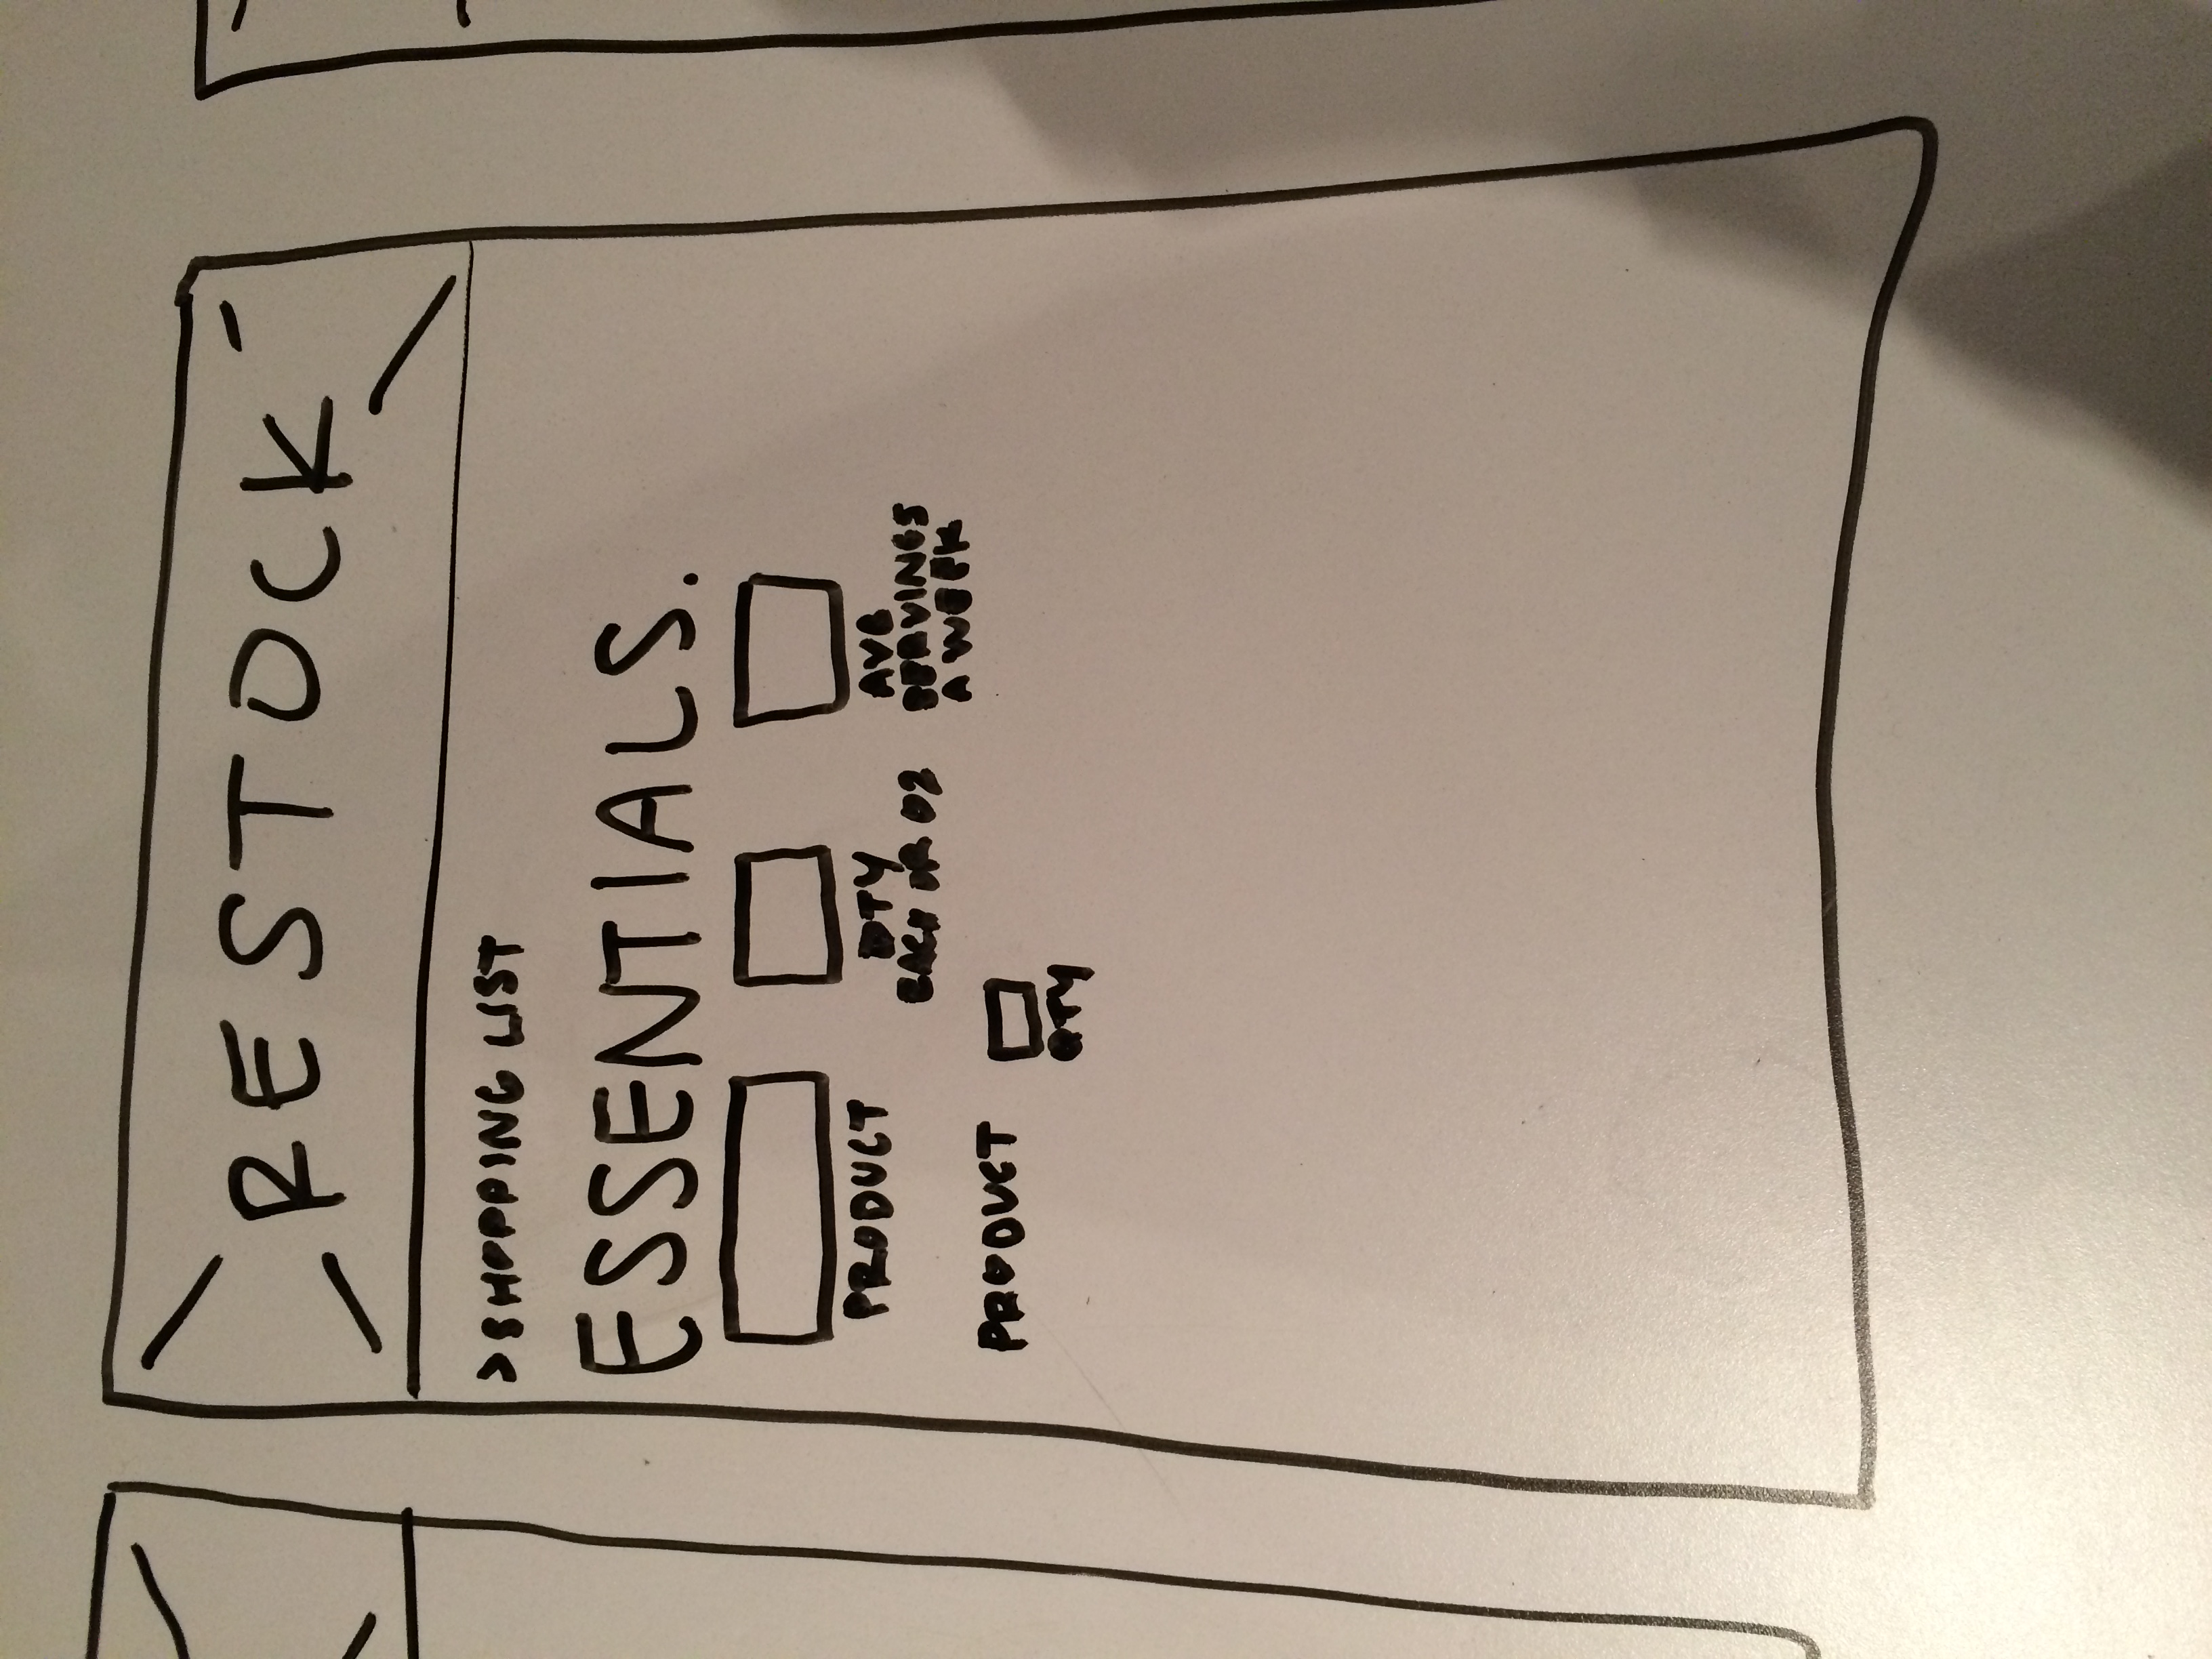 RESTOCK
>SHOPPING LIST
ESSENTIALS.
PRODUCT QTY AVG
EACH OR OZ SERVINGS
A WEEK
PRODUCT
QTY